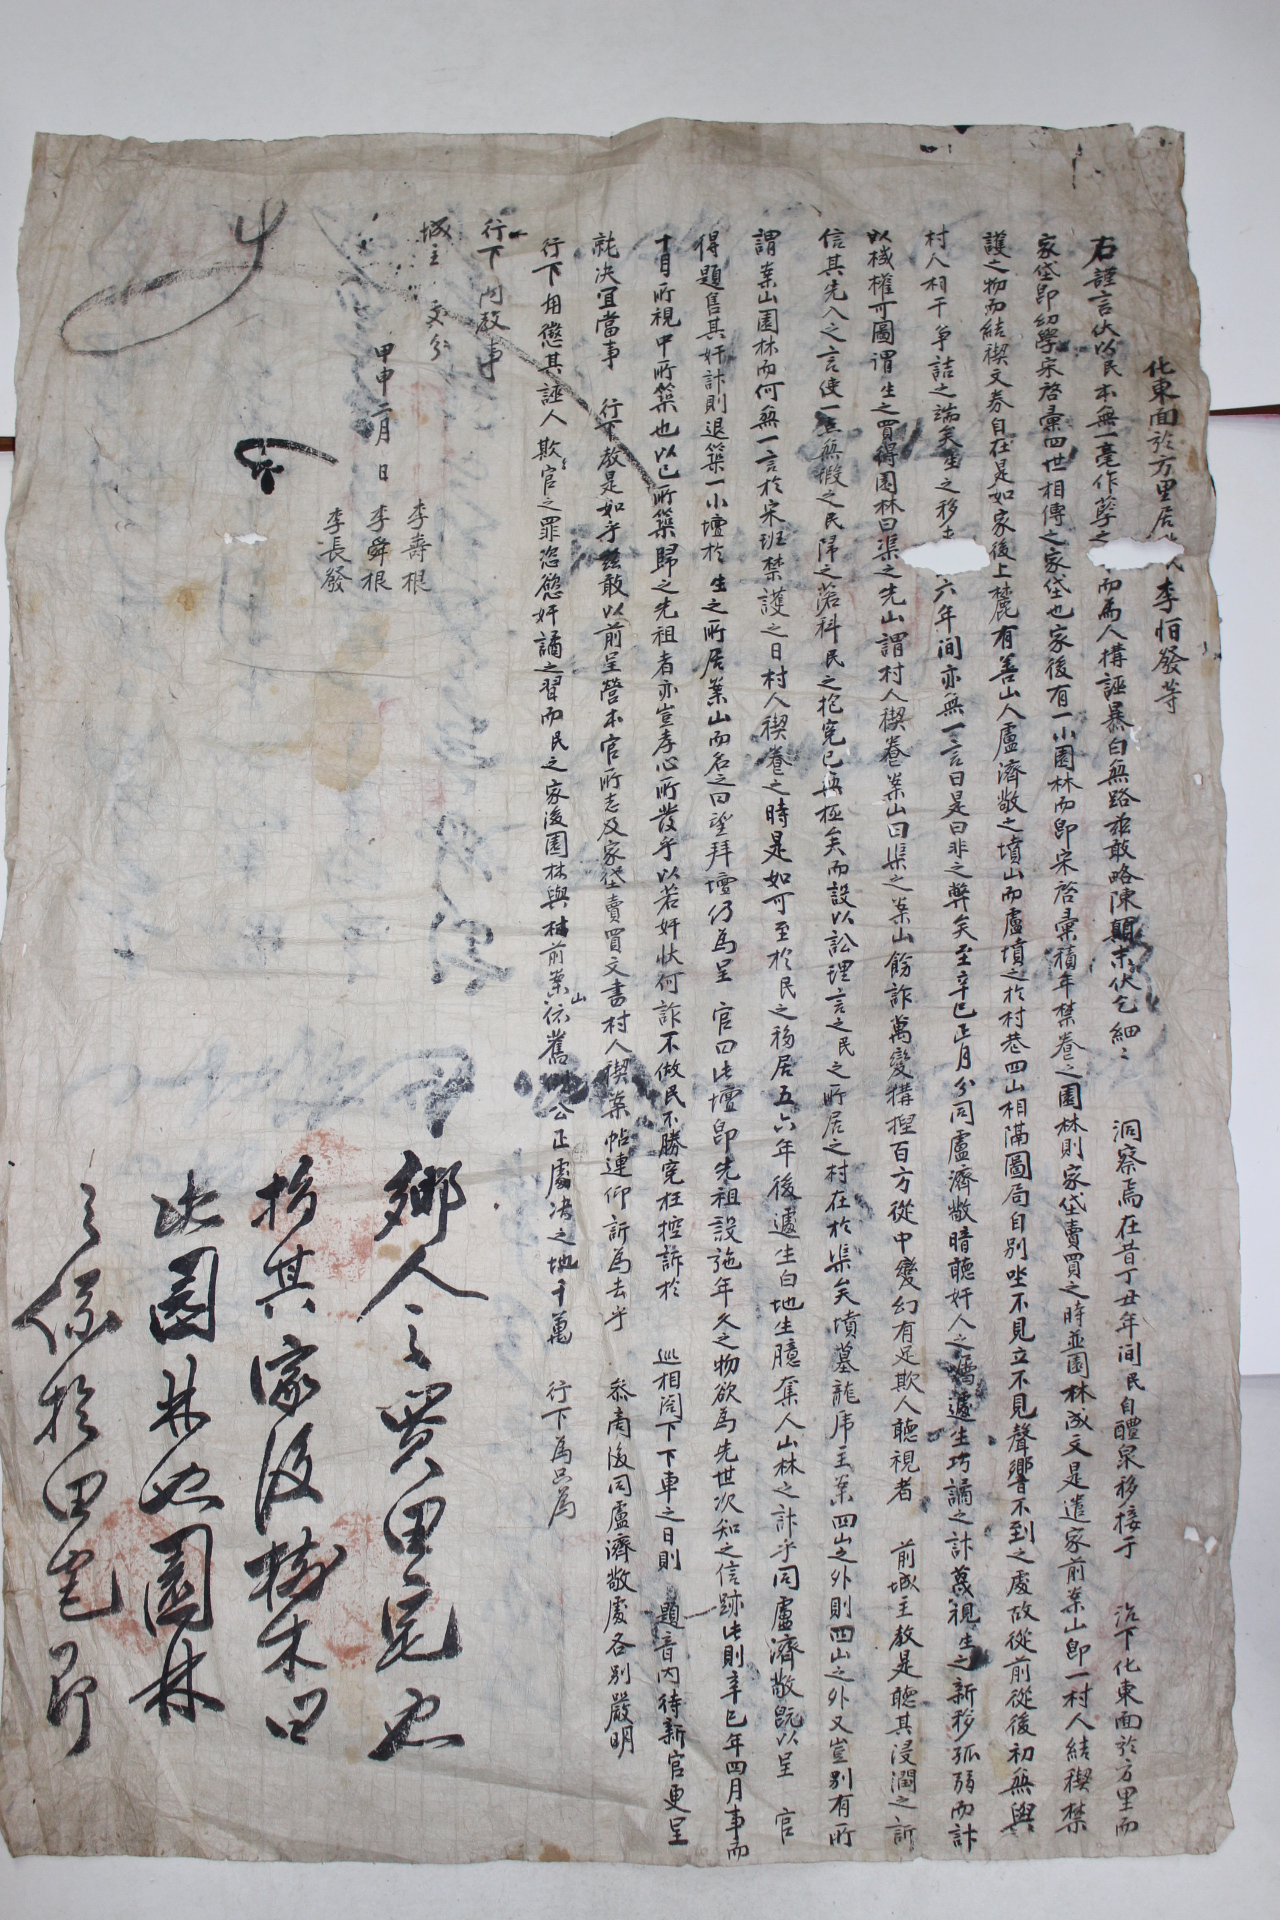 化東面於方里居民李怕發等
右謹言伏以民本無一毫作孽之 而爲人構誣暴白無路玆敢略陳顚末伏乞細〻 洞察焉在昔丁丑年間民自醴泉移接于 治下化東面於方里而
家垈卽幼學宋啓彙四世相傳之家垈也家後有一小園林而卽宋啓彙積年禁養之園林則家垈賣買之時並園林成文是遣家前案山卽一村人結稧禁
護之物而結稧文券自在是如家後上麓有善山人盧濟敞之墳山而盧墳之於村巷四山相隔圖局自別坐不見立不見聲響不到之處故從前從後初無與
村人相干爭詰之端矣生之移 六年間亦無一言曰是曰非之弊矣至辛巳正月分同盧濟敞暗聽奸人之囑遽生巧譎之計蔑視生之新移孤弱而計
以械權可圖謂生之買得園林曰渠之先山謂村人稧養案山曰渠之案山飾詐萬變搆捏百方從中變幻有足欺人聽視者 前城主敎是聽其浸潤之訴
信其先入之言使一虛無假之民歸之落科民之抱寃已無極矣而設以訟理言之民之所居之村在於渠矣墳墓龍虎主案四山之外則四山之外又豈別有所
謂案山園林而何無一言於宋班禁護之日村人稧養之時是如可至於民之移居五六年後遽生白地生臆奪人山林之計乎同盧濟敞旣以呈 官
得題售其奸計則退築一小壇於生之所居案山而名之曰望拜壇仍爲呈 官曰此壇卽先祖設施年久之物欲爲先世次知之信跡此則辛巳年四月事而
十目所視中所築也以已所築歸之先祖者亦豈孝心所發乎以若奸伏何詐不做民不勝寃枉控訴於 巡相閤下下車之日則 題音內待新官更呈
就决宜當事 行下敎是如乎玆敢以前呈營本官所志及家垈賣買文書村人稧案帖連仰訴爲去乎 參商後同盧濟敞處各別嚴明
行下用懲其誣人欺〻官之罪恣慾奸譎之習而民之家後園林與村前案山依舊 公正處决之地千萬 行下爲只爲
行下向敎事
城主 處分
甲申二月 日 李壽根
李舜根
李長發
鄕人之買田宅也
幷其家後樹木曰
此園林也園林
之係於田宅卽